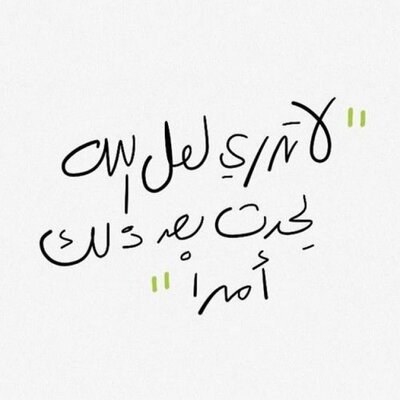 "لا تدري لعل الله
يحدث بعد ذلك
أمراً"